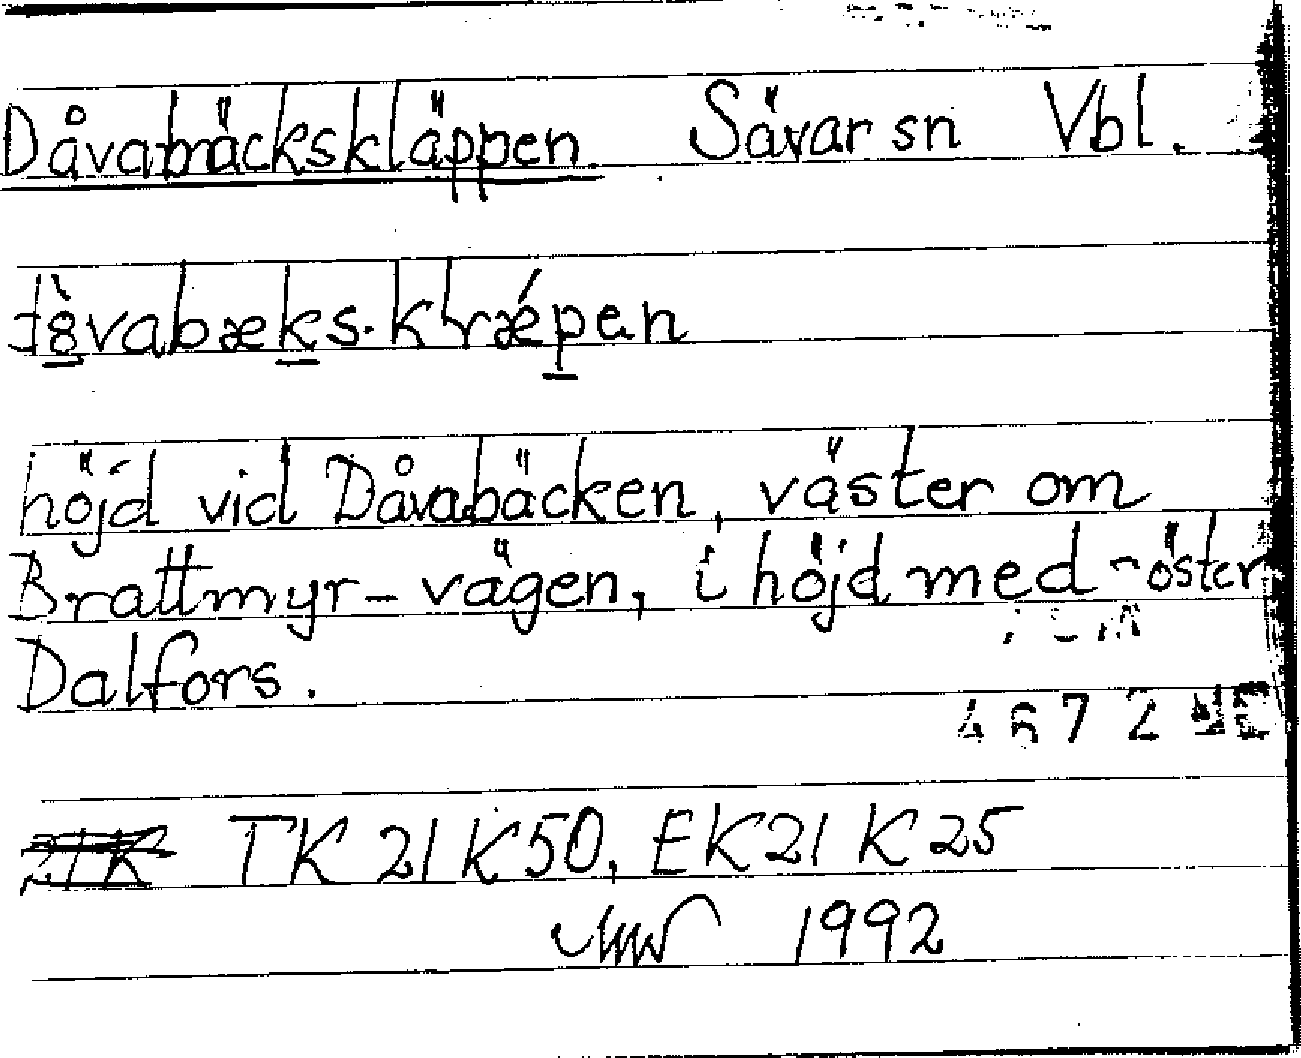 Dåvabäckskläppen. Sävar sn Vbl.
höjd vid Dåvabäcken, väster om
Brattmyr-vägen, i höjd med -öster
Dalfors.
4672
TK 21 K 50, EK 21 K 25
1992